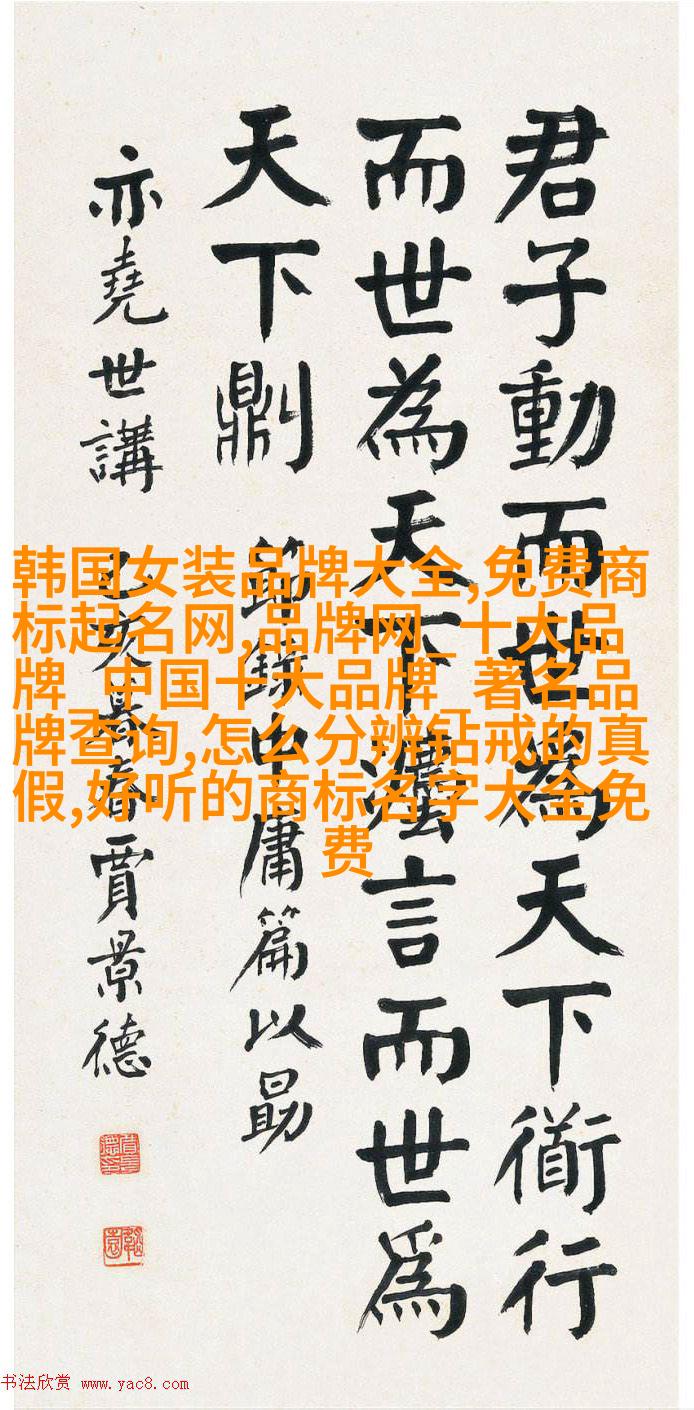 君子動而世為天下衜行
而世為天下灋言而世為
天下𠟭
節錄中庸篇以勗
亦堯世講 己亥暮春賈景德
韩国女装品牌大全,免费商
标起名网,品牌网_十大品
牌_中国十大品牌_著名品
牌查询,怎么分辨钻戒的真
假,好听的商标名字大全免
费
书法欣赏 www.yac8.com